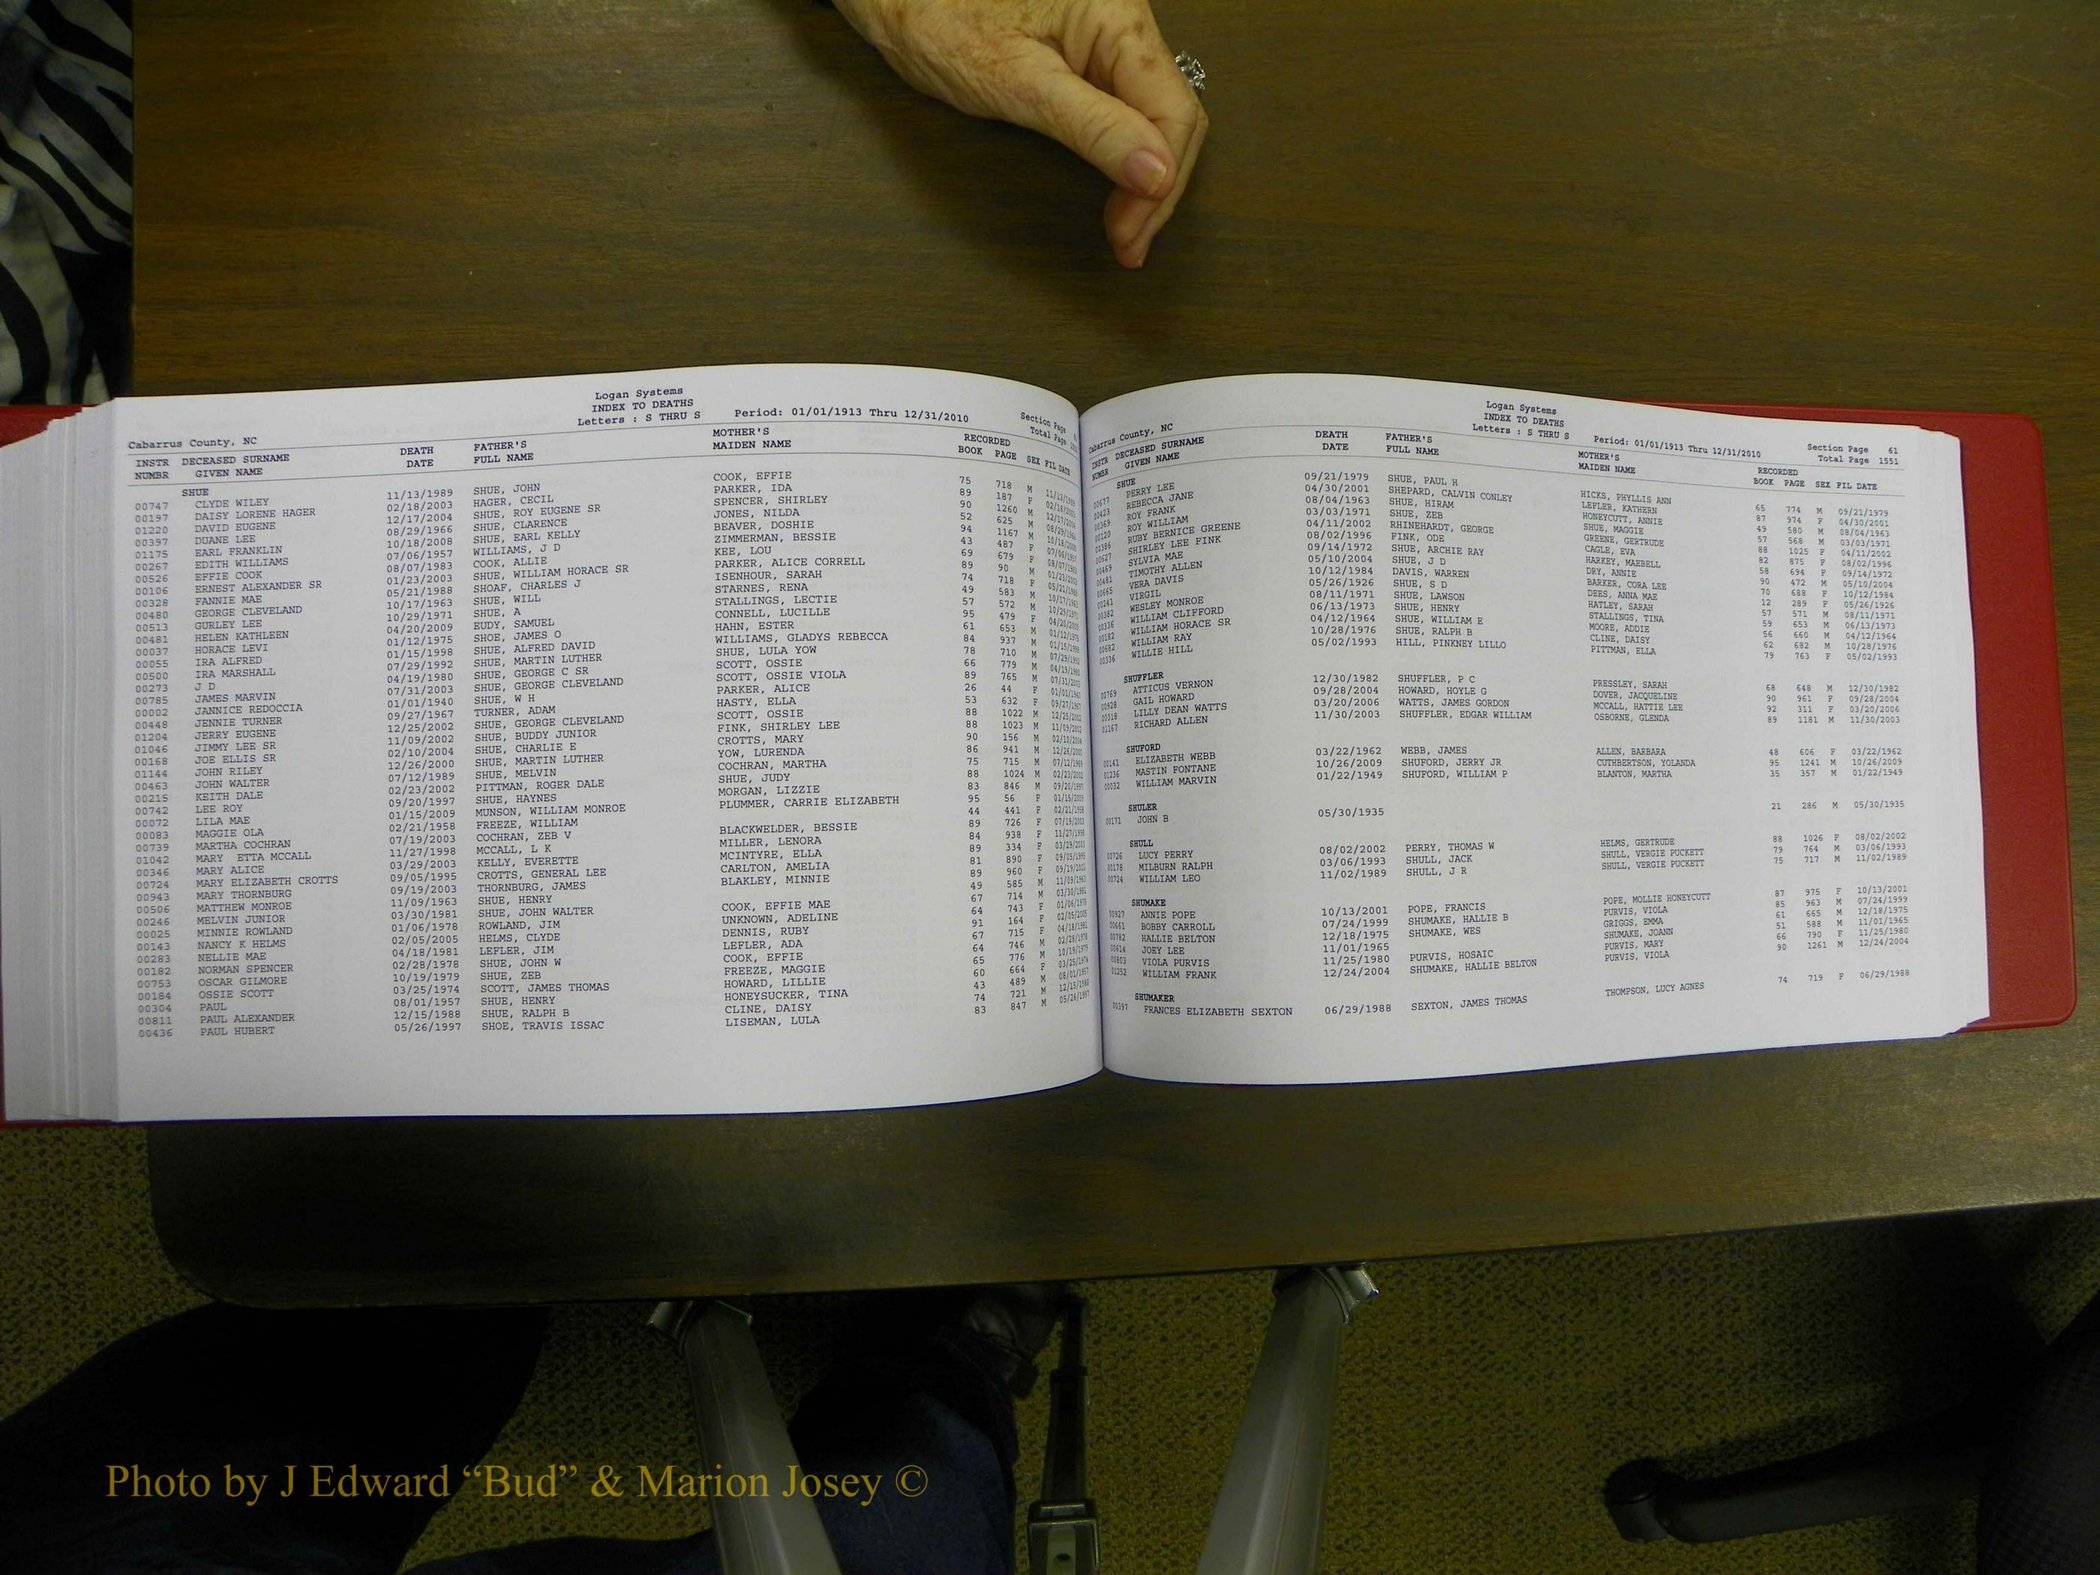 Logan Systems
INDEX TO DEATHS
Letters : S THRU S Period: 01/01/1913 Thru 12/31/2010
Cabarrus County, NC Section Page
Total Page
INSTR DECEASED SURNAME DEATH FATHER'S MOTHER'S RECORDED
NUMBR GIVEN NAME DATE FULL NAME MAIDEN NAME BOOK PAGE SEX FIL DATE
SHUE
00747 CLYDE WILEY 11/13/1989 SHUE, JOHN COOK, EFFIE 75 718 M 11/13/1989
00197 DAISY LORENE HAGER 02/18/2003 HAGER, CECIL PARKER, IDA 89 187 F 02/18/2003
01220 DAVID EUGENE 12/17/2004 SHUE, ROY EUGENE SR SPENCER, SHIRLEY 90 1260 M 12/17/2004
00397 DUANE LEE 08/29/1966 SHUE, CLARENCE JONES, NILDA 52 625 M 08/29/1966
01175 EARL FRANKLIN 10/18/2008 SHUE, EARL KELLY BEAVER, DOSHIE 94 1167 M
00267 EDITH WILLIAMS 07/06/1957 WILLIAMS, J D ZIMMERMAN, BESSIE 43 487 F
00526 EFFIE COOK 08/07/1983 COOK, ALLIE KEE, LOU 69 679 F
00106 ERNEST ALEXANDER SR 01/23/2003 SHUE, WILLIAM HORACE SR PARKER, ALICE CORRELL 89 90 M
00328 FANNIE MAE 05/21/1988 SHOAF, CHARLES J ISENHOUR, SARAH 74 718 F
00480 GEORGE CLEVELAND 10/17/1963 SHUE, WILL STARNES, RENA 49 583 M
00513 GURLEY LEE 10/29/1971 SHUE, A STALLINGS, LECTIE 57 572 M
00481 HELEN KATHLEEN 04/20/2009 EUDY, SAMUEL CONNELL, LUCILLE 95 479 F
00037 HORACE LEVI 01/12/1975 SHOE, JAMES O HAHN, ESTER 61 653 M
00055 IRA ALFRED 01/15/1998 SHUE, ALFRED DAVID WILLIAMS, GLADYS REBECCA 84 937 M
00500 IRA MARSHALL 07/29/1992 SHUE, MARTIN LUTHER SHUE, LULA YOW 78 710 M
00273 J D 04/19/1980 SHUE, GEORGE C SR SCOTT, OSSIE 66 779 M
00785 JAMES MARVIN 07/31/2003 SHUE, GEORGE CLEVELAND SCOTT, OSSIE VIOLA 89 765 M
00002 JANNICE REDOCCIA 01/01/1940 SHUE, W H PARKER, ALICE 26 44 F
00448 JENNIE TURNER 09/27/1967 TURNER, ADAM HASTY, ELLA 53 632 F
01204 JERRY EUGENE 12/25/2002 SHUE, GEORGE CLEVELAND SCOTT, OSSIE 88 1022 M
01046 JIMMY LEE SR 11/09/2002 SHUE, BUDDY JUNIOR FINK, SHIRLEY LEE 88 1023 M
00168 JOE ELLIS SR 02/10/2004 SHUE, CHARLIE E CROTTS, MARY 90 156 M
01144 JOHN RILEY 12/26/2000 SHUE, MARTIN LUTHER YOW, LURENDA 86 941 M
00463 JOHN WALTER 07/12/1989 SHUE, MELVIN COCHRAN, MARTHA 75 715 M
00215 KEITH DALE 02/23/2002 PITTMAN, ROGER DALE SHUE, JUDY 88 1024 M
00742 LEE ROY 09/20/1997 SHUE, HAYNES MORGAN, LIZZIE 83 846 M
00072 LILA MAE 01/15/2009 MUNSON, WILLIAM MONROE PLUMMER, CARRIE ELIZABETH 95 56 F
00083 MAGGIE OLA 02/21/1958 FREEZE, WILLIAM 44 441 F 02/21/1958
00739 MARTHA COCHRAN 07/19/2003 COCHRAN, ZEB V BLACKWELDER, BESSIE 89 726 F 07/19/2003
01042 MARY ETTA MCCALL 11/27/1998 MCCALL, L K MILLER, LENORA 84 938 F 11/27/1998
00346 MARY ALICE 03/29/2003 KELLY, EVERETTE MCINTYRE, ELLA 89 334 F 03/29/2003
00724 MARY ELIZABETH CROTTS 09/05/1995 CROTTS, GENERAL LEE CARLTON, AMELIA 81 890 F 09/05/1995
00943 MARY THORNBURG 09/19/2003 THORNBURG, JAMES BLAKLEY, MINNIE 89 960 F 09/19/2003
00506 MATTHEW MONROE 11/09/1963 SHUE, HENRY 49 585 M 11/09/1963
00246 MELVIN JUNIOR 03/30/1981 SHUE, JOHN WALTER COOK, EFFIE MAE 67 714 M 03/30/1981
00025 MINNIE ROWLAND 01/06/1978 ROWLAND, JIM UNKNOWN, ADELINE 64 743 F 01/06/1978
00143 NANCY K HELMS 02/05/2005 HELMS, CLYDE DENNIS, RUBY 91 164 F 02/05/2005
00283 NELLIE MAE 04/18/1981 LEFLER, JIM LEFLER, ADA 67 715 F 04/18/1981
00182 NORMAN SPENCER 02/28/1978 SHUE, JOHN W COOK, EFFIE 64 746 M 02/28/1978
00753 OSCAR GILMORE 10/19/1979 SHUE, ZEB FREEZE, MAGGIE 65 776 M 10/19/1979
00184 OSSIE SCOTT 03/25/1974 SCOTT, JAMES THOMAS HOWARD, LILLIE 60 664 F 03/25/1974
00304 PAUL 08/01/1957 SHUE, HENRY HONEYSUCKER, TINA 43 489 M 08/01/1957
00811 PAUL ALEXANDER 12/15/1988 SHUE, RALPH B CLINE, DAISY 74 721 M 12/15/1988
00436 PAUL HUBERT 05/26/1997 SHOE, TRAVIS ISSAC LISEMAN, LULA 83 847 M 05/26/1997
Logan Systems
INDEX TO DEATHS
Letters : S THRU S Period: 01/01/1913 Thru 12/31/2010
Cabarrus County, NC Section Page 61
Total Page 1551
INSTR DECEASED SURNAME DEATH FATHER'S MOTHER'S RECORDED
NUMBR GIVEN NAME DATE FULL NAME MAIDEN NAME BOOK PAGE SEX FIL DATE
SHUE
00677 PERRY LEE 09/21/1979 SHUE, PAUL H HICKS, PHYLLIS ANN 65 774 M 09/21/1979
00423 REBECCA JANE 04/30/2001 SHEPARD, CALVIN CONLEY LEFLER, KATHERN 87 974 F 04/30/2001
00369 ROY FRANK 08/04/1963 SHUE, HIRAM HONEYCUTT, ANNIE 49 580 M 08/04/1963
00120 ROY WILLIAM 03/03/1971 SHUE, ZEB SHUE, MAGGIE 57 568 M 03/03/1971
00386 RUBY BERNICE GREENE 04/11/2002 RHINEHARDT, GEORGE GREENE, GERTRUDE 88 1025 F 04/11/2002
00627 SHIRLEY LEE FINK 08/02/1996 FINK, ODE CAGLE, EVA 82 875 F 08/02/1996
00469 SYLVIA MAE 09/14/1972 SHUE, ARCHIE RAY HARKEY, MAEBELL 58 694 F 09/14/1972
00481 TIMOTHY ALLEN 05/10/2004 SHUE, J D DRY, ANNIE 90 472 M 05/10/2004
00665 VERA DAVIS 10/12/1984 DAVIS, WARREN BARKER, CORA LEE 70 688 F 10/12/1984
00241 VIRGIL 05/26/1926 SHUE, S D DEES, ANNA MAE 12 289 F 05/26/1926
00382 WESLEY MONROE 08/11/1971 SHUE, LAWSON HATLEY, SARAH 57 571 M 08/11/1971
00336 WILLIAM CLIFFORD 06/13/1973 SHUE, HENRY STALLINGS, TINA 59 653 M 06/13/1973
00182 WILLIAM HORACE SR 04/12/1964 SHUE, WILLIAM E MOORE, ADDIE 56 660 M 04/12/1964
00682 WILLIAM RAY 10/28/1976 SHUE, RALPH B CLINE, DAISY 62 682 M 10/28/1976
00336 WILLIE HILL 05/02/1993 HILL, PINKNEY LILLO PITTMAN, ELLA 79 763 F 05/02/1993
SHUFFLER
00769 ATTICUS VERNON 12/30/1982 SHUFFLER, P C PRESSLEY, SARAH 68 648 M 12/30/1982
00928 GAIL HOWARD 09/28/2004 HOWARD, HOYLE G DOVER, JACQUELINE 90 961 F 09/28/2004
00318 LILLY DEAN WATTS 03/20/2006 WATTS, JAMES GORDON MCCALL, HATTIE LEE 92 311 F 03/20/2006
01167 RICHARD ALLEN 11/30/2003 SHUFFLER, EDGAR WILLIAM OSBORNE, GLENDA 89 1181 M 11/30/2003
SHUFORD
00141 ELIZABETH WEBB 03/22/1962 WEBB, JAMES ALLEN, BARBARA 48 606 F 03/22/1962
01236 MASTIN FONTANE 10/26/2009 SHUFORD, JERRY JR CUTHBERTSON, YOLANDA 95 1241 M 10/26/2009
00032 WILLIAM MARVIN 01/22/1949 SHUFORD, WILLIAM P BLANTON, MARTHA 35 357 M 01/22/1949
SHULER
00171 JOHN B 05/30/1935 21 286 M 05/30/1935
SHULL
00726 LUCY PERRY 08/02/2002 PERRY, THOMAS W HELMS, GERTRUDE 88 1026 F 08/02/2002
00178 MILBURN RALPH 03/06/1993 SHULL, JACK SHULL, VERGIE PUCKETT 79 764 M 03/06/1993
00724 WILLIAM LEO 11/02/1989 SHULL, J R SHULL, VERGIE PUCKETT 75 717 M 11/02/1989
SHUMAKE
00927 ANNIE POPE 10/13/2001 POPE, FRANCIS POPE, MOLLIE HONEYCUTT 87 975 F 10/13/2001
00661 BOBBY CARROLL 07/24/1999 SHUMAKE, HALLIE B PURVIS, VIOLA 85 963 M 07/24/1999
00782 HALLIE BELTON 12/18/1975 SHUMAKE, WES GRIGGS, EMMA 61 665 M 12/18/1975
00614 JOEY LEE 11/01/1965 SHUMAKE, JOANN 51 588 M 11/01/1965
00803 VIOLA PURVIS 11/25/1980 PURVIS, HOSAIC PURVIS, MARY 66 790 F 11/25/1980
01252 WILLIAM FRANK 12/24/2004 SHUMAKE, HALLIE BELTON PURVIS, VIOLA 90 1261 M 12/24/2004
SHUMAKER
00397 FRANCES ELIZABETH SEXTON 06/29/1988 SEXTON, JAMES THOMAS THOMPSON, LUCY AGNES 74 719 F 06/29/1988
Photo by J Edward “Bud” & Marion Josey ©